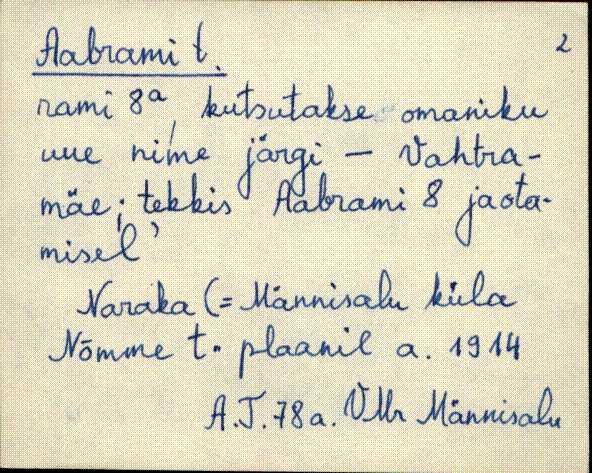 Aabrami t. 2
rami 8ª, kutsutakse omaniku
uue nime järgi – Vahtra-
mäe; tekkis Aabrami 8 jaota-
misel’
Naraka (= Männisalu küla
Nõmme t. plaanil a. 1914
A.J. 78a. VMr Männisalu